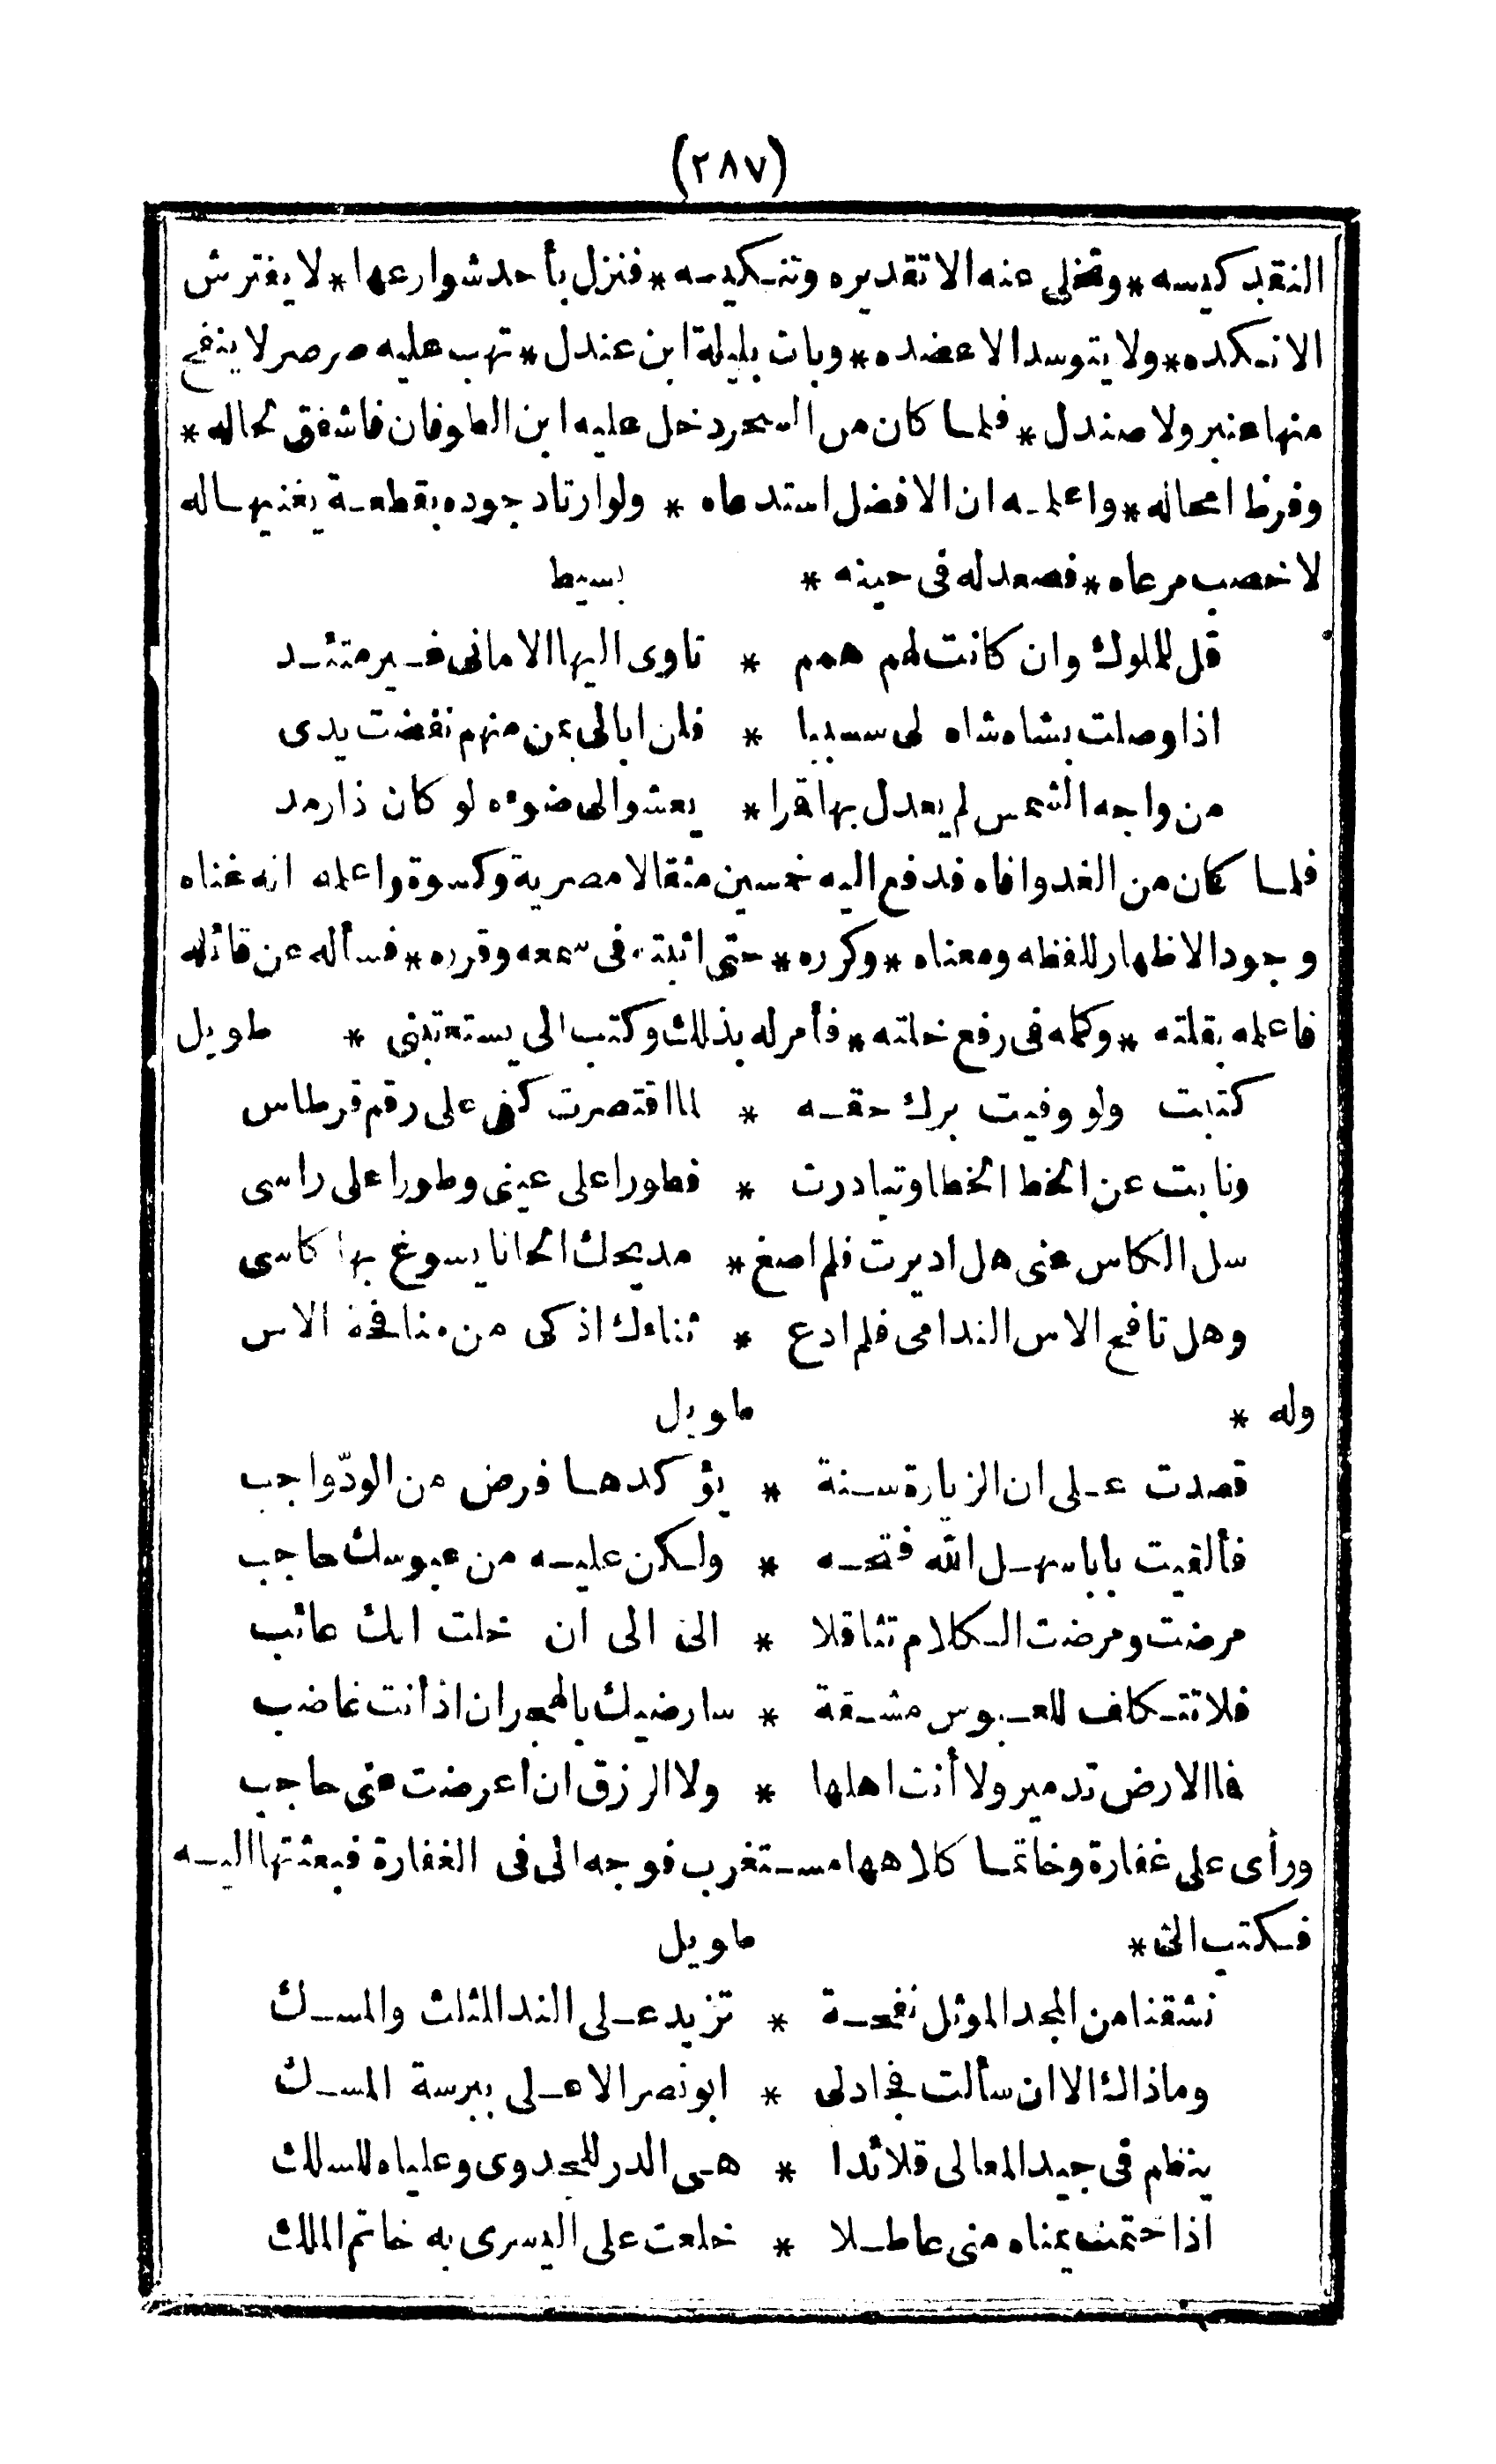 (٢٨٧)
النقد كيسه * وتخلى عنه الا تقديره وتنكيسه * فنزل بأحد شوارعها * لا يفترش
الا نكده * ولا يتوسد الا عضده * وبات بليلة ابن عندل * تهب عليه صرصر لا ينفح
منها عنبر ولا صندل * فلما كان من السحر دخل عليه ابن الطوفان فاشفق لحاله *
وفرط امحاله * واعلمه ان الافضل استدعاه * ولو ارتاد جوده بقطعة يغنيها له
لاخصب مرعاه * فصعد له فى حينه * بسيط
قل للملوك وان كانت لهم همم * تاوى اليها الامانى غير متئد
اذا وصلت بشاه شاه لى سببا * فلن ابالى بمن منهم نفضت يدى
من واجه الشمس لم يعدل بها قرا * يعشو الى ضوءه لو كان ذا رمد
فلما كان من الغد وافاه فدفع اليه خمسين مثقالا مصرية وكسوة واعلمه انه غناه
وجود الاظهار للفظه ومعناه * وكرره * حتى اثبته فى سمعه وقرره * فسأله عن قائله
فاعلمه بقلته * وكلمه فى رفع خلته * فأمر له بذلك وكتب الى يستعتبنى * طويل
كتبت ولو وفيت برك حقه * لما اقتصرت كفى على رقم قرطاس
ونابت عن الخط الخطا وتبادرت * فطورا على عينى وطورا على راسى
سل الكاس عنى هل اديرت فلم اصغ * مديحك الحانا يسوغ بها كاسى
وهل نافح الاس الندامى فلم ادع * ثناءك اذكى من منافحة الاس
وله * طويل
قصدت على ان الزيارة سنة * يؤكدها فرض من الودّ واجب
فألفيت بابا سهل الله فتحه * ولكن عليه من عبوسك حاجب
مرضت ومرضت الكلام تثاقلا * الى الى ان خلت انك عائب
فلا تتكلف للعبوس مشقة * سارضيك بالهجران اذ أنت غاضب
فا الارض تدمير ولا أنت اهلها * ولا الرزق ان اعرضت عنى حاجب
ورأى على غفارة وخاتما كلاهما مستغرب فوجه الى فى الغفارة فبعثتها اليه
فكتب الى * طويل
نشقنا من المجد الموثل نفحة * تزيد على الند المثلث والمسك
وما ذاك الا ان سألت فجاد لى * ابو نصر الاعلى ببرسة المسك
ينظم فى جيد المعالى قلائدا * هى الدر للجدوى وعلياه للسلك
اذا ختمت يمناه منى عاطلا * خلعت على اليسرى به خاتم الملك